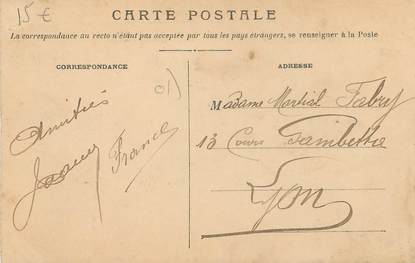 15 €
CARTE POSTALE
La correspondance au recto n'étant pas acceptée par tous les pays étrangers, se renseigner à la Poste
CORRESPONDANCE
ADRESSE
01)
Amitiés
France
Madame Martial Fabry
13 Cours Gambetta
Lyon